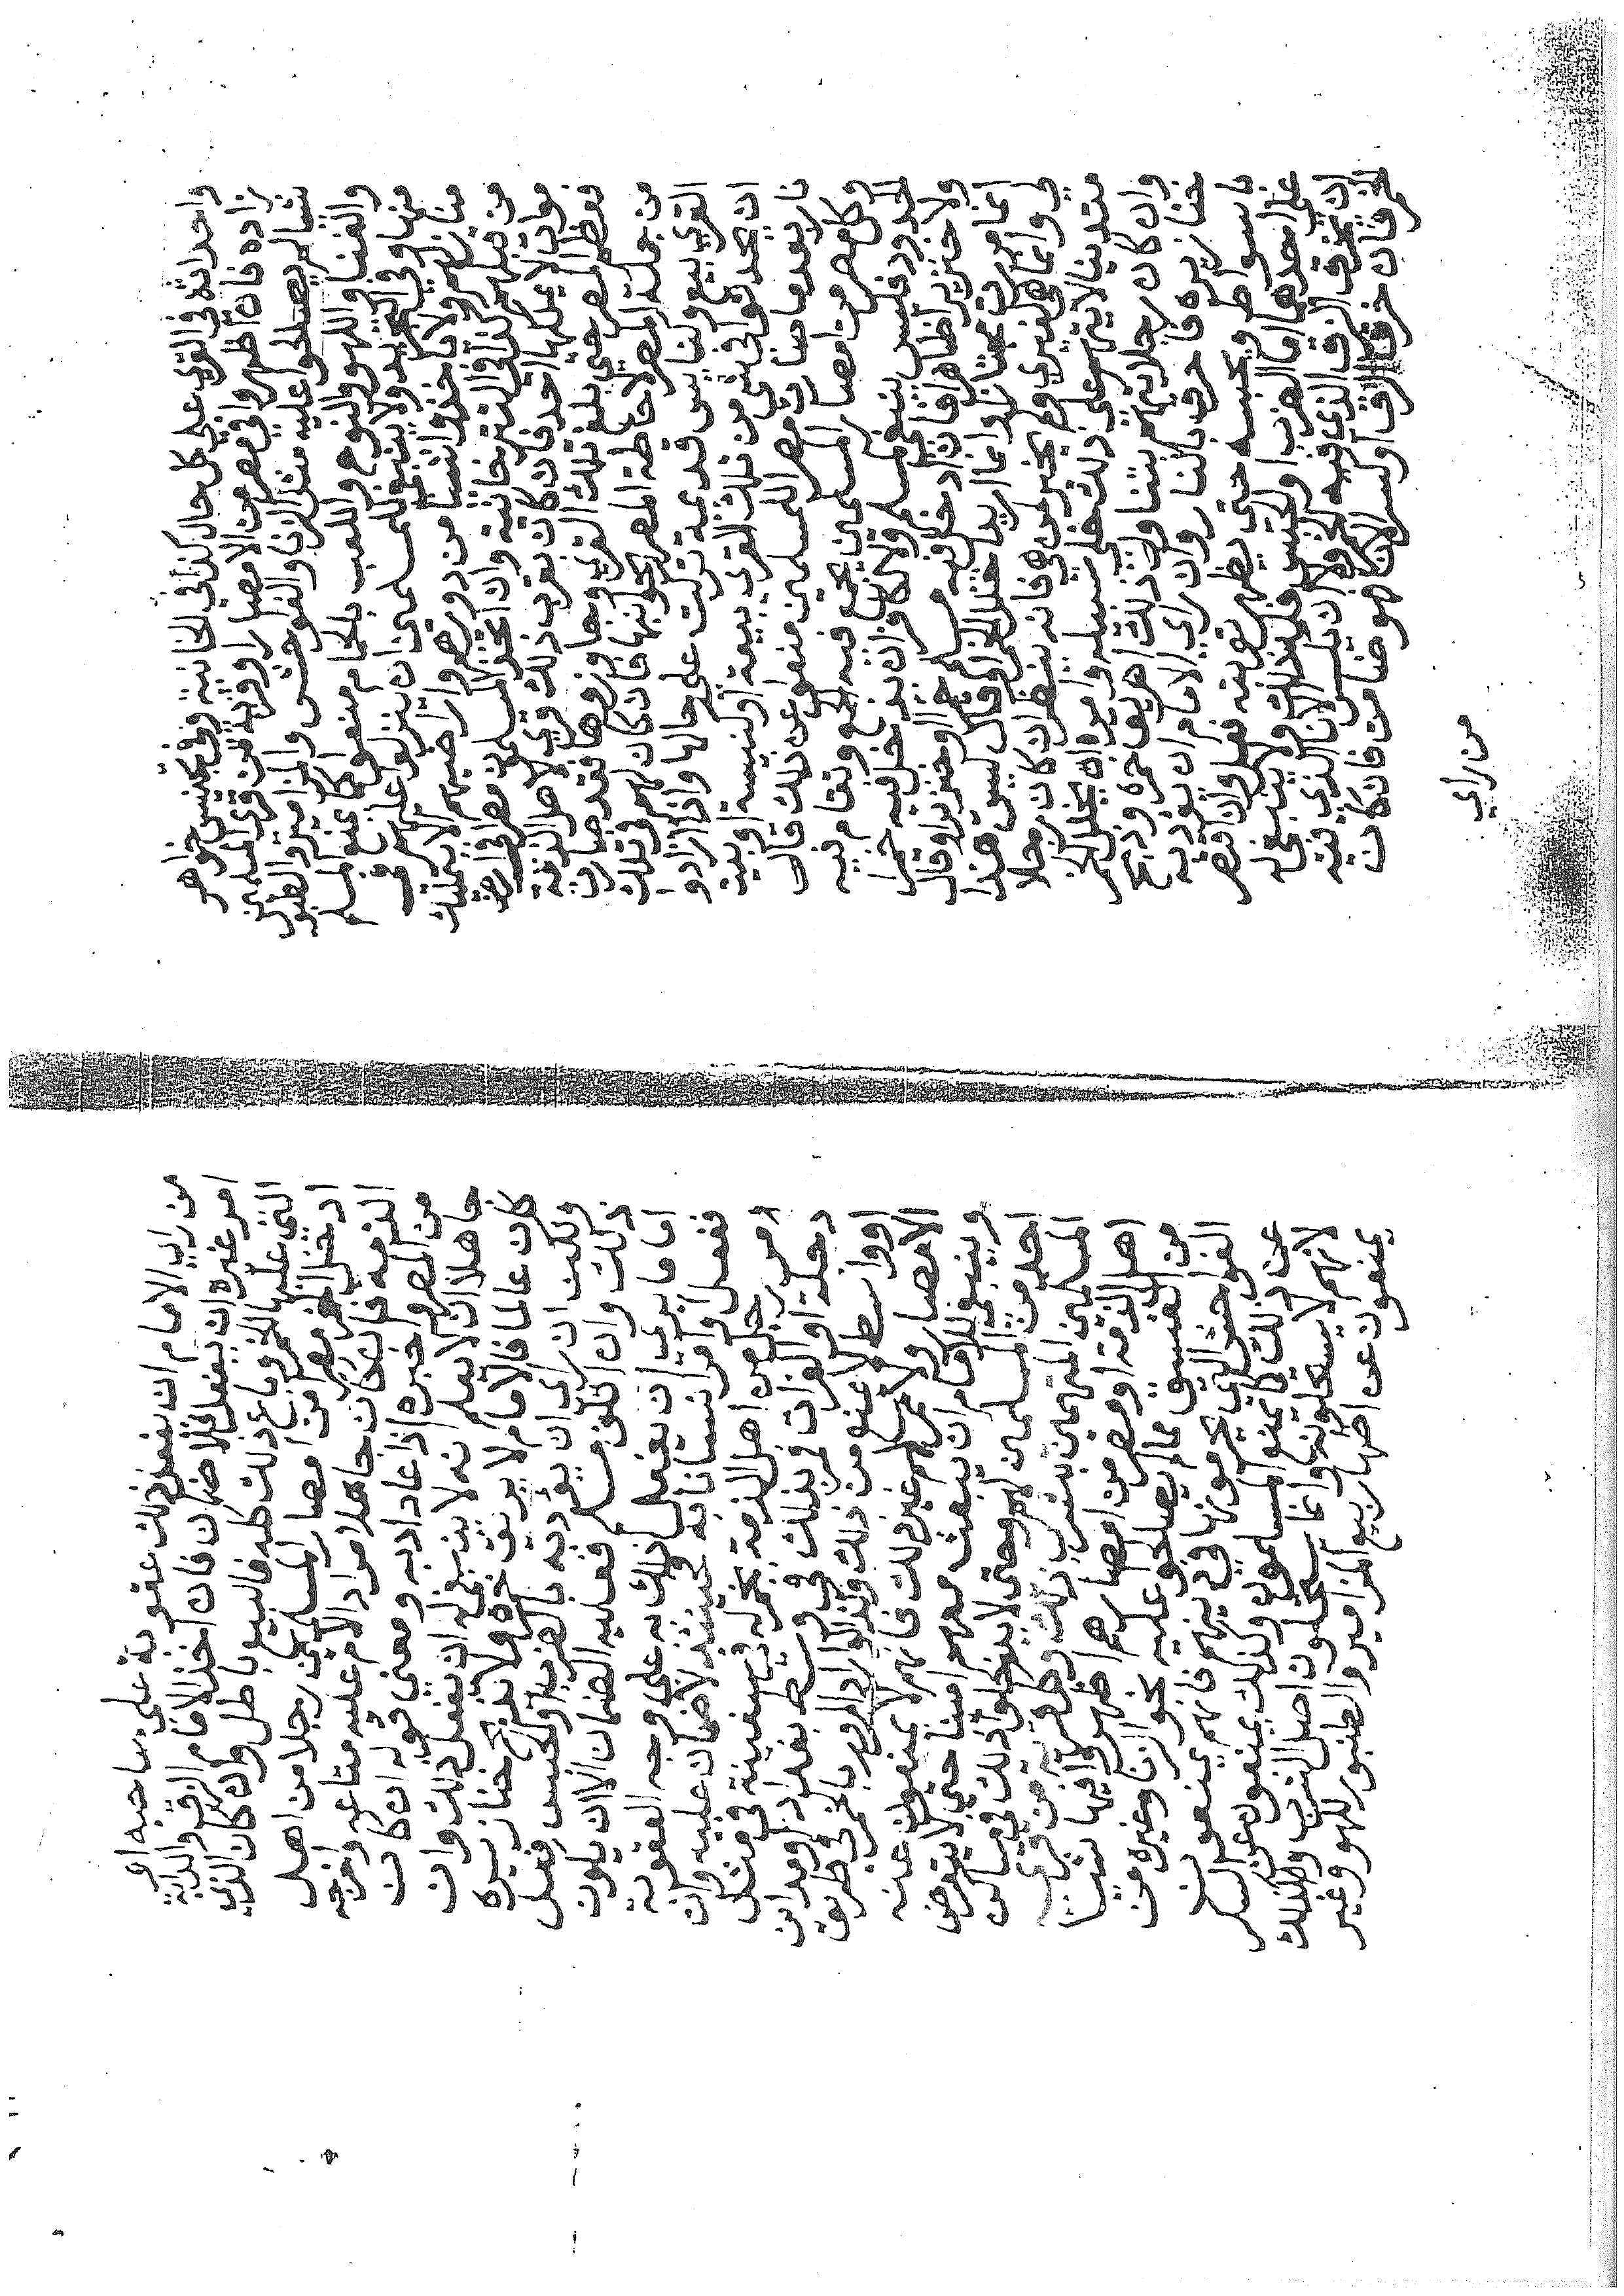 واحداثه في القري علي كل حال كذا في الخانية وفي تجنيس خواهر
زاده فان اظهروا في مصر من الامصار او قرية من قري المسلمين
شيا لم يصطلحوا عليه مثل الزنا والفواحش والمزامير والطبول
والغنا واللهو والنوح واللعب بالحمام منعوا كما يمنع المسلم
منها وفي التجريد ولا ينبغي للمسلمين ان ينزلوا عليهم في
منازلهم ولا ياخذوا شيا من دورهم واراضيهم الا بتمليك
من قبلهم كذا في التترخانية وان اتخذ المسلمون مصرا في ارض
موات لا يملكها احد فان كان بقرب ذلك قري لاهل الذمة
فعظم المصر حتي بلغ تلك القري وجاوزها فقد صارت
من جملة المصر لاحاطة المصر بجوانبها فان كان لهم في تلك
القري بيع وكنايس قديمة تركت علي حالها وان ارادوا
ان يحدثوا في شي من تلك القري بيعة او كنيسة او بيت
نار بعد ما صارت مصرا للمسلمين منعوا عن ذلك قال
وكل مصر من امصار المسلمين يجمع فيه الجمع وتقام فيه
الحدود فليس ينبغي لمسلم ولا كافر ان يدخل فيه خمرا
ولا خنزيرا ظاهرا فان ادخل فيه مسلم خمرا او خنزيرا وقال
انما مررت مجتازا وانما اريد اخلل الخمر او قال ليس هذا
لي وانما هي لغيري ولم يخبر لمن هي فانه ينظر ان كان رجلا
متدينا لا يتهم علي ذلك خلي سبيله وامره ان يخلل الخمر
وان كان رجلا يتهم بتناول ذلك اهريق خمره وذبح
خنازيره فاحرق بالنار وان راي الامام ان يودبه
باسواط ويحبسه حتي يظهر توبته فعل وان اقتصر
علي احدهما اما الضرب او الحبس فله ذلك ولا ينبغي له
ان يخرق الزق الذي فيه الخمر ولا ان يكسر الاناء الذي فيه
الخمر فان خرق الزق او كسر الاناء فهو ضامن فان كان
من راي
من راي الامام ان يفعل ذلك عقوبة علي صاحبه او
امر غيره ان يفعل فلا ضمان فان اخذ الامام الزق والدابة
التي عليها الخمر وباع ذلك كله فالبيع باطل وان كان الذي
ادخل الخمر مصرا من امصار المسلمين رجلا من اهل
الذمة فان كان جاهلا رد الامام عليه متاعه واخرجه
من المصر واخبره اذا عاد ادبه ومعني قوله ان كان
جاهلا ان لا يعلم انه لا ينبغي له ان يفعل ذلك وان
كان عالما فالامام لا يريق خمره ولا يذبح خنازيره
ولكن ان راي ان يودبه بالضرب او الحبس فعل
ذلك وان اتلف مسلم فعليه الضمان الا ان يكون
اماما يري ان يفعل ذلك به علي وجه العقوبة
ففعل او امر انسانا به فحينئذ لا ضمان عليه وان
مر رجل من اهل الذمة بخمر له في سفينة في مثل
دجلة او الفرات فمر بذلك في وسط بغداد او مداين
او واسط لا يمنع من ذلك وكذا لو اراد المرور بالخمر في طريق
الامصار ولا ممر لهم غير ذلك فانهم لا يمنعون عنه
وينبغي للامام ان يبعث معهم امينا حتي لا يتعرض
احد من المسلمين لهم وحتي لا يدخلوا ذلك في مساكن
المسلمين المتهمين بشرب ذلك وكل قرية من قري
اهل الذمة او مصر من امصارهم اظهروا فيها شيا
من الفسق مما لم يصالحوا عليه نحو الزنا وغيره من
الفواحش التي يحرمونها في دينهم فانهم يمنعون
عن ذلك كما يمنع المسلمون وكذلك يمنعون عن السكر
لانهم لا يستحلونه وانما يستحلون اصل الشرب وكذلك
يمنعون عن اظهار بيع المزامير والطنبور للهو وغير